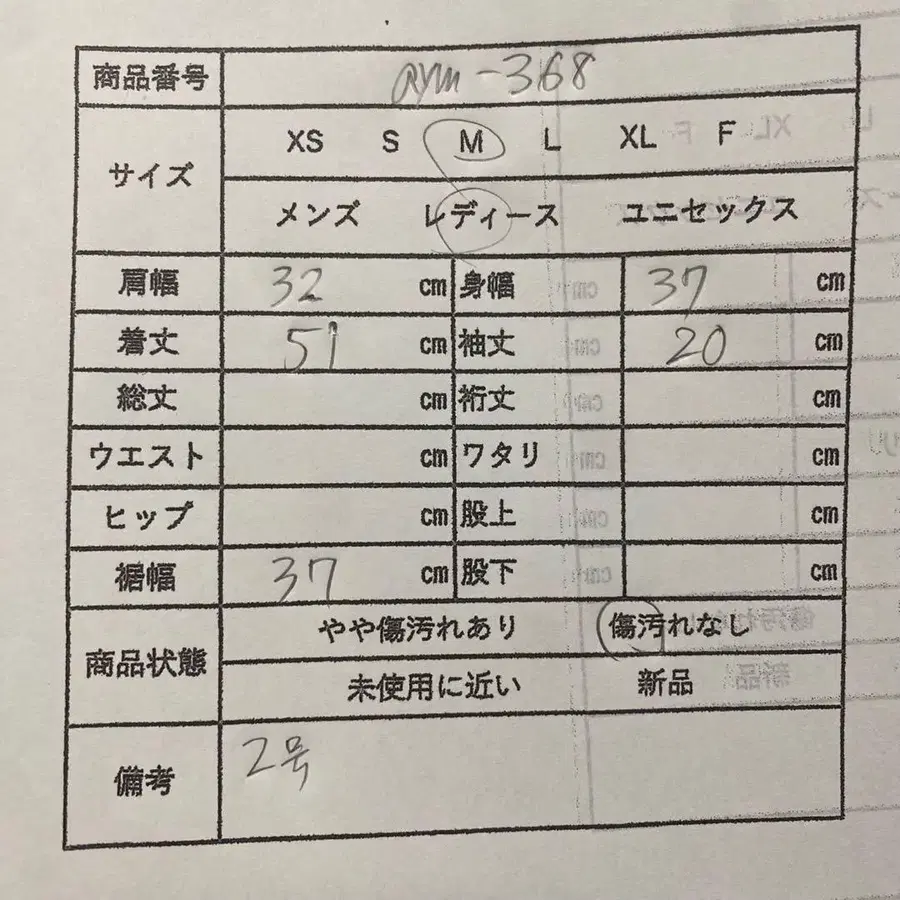 商品番号 aym-368
サイズ XS S M L XL F
メンズ レディース ユニセックス
肩幅 32 cm 身幅 37 cm
着丈 51 cm 袖丈 20 cm
総丈 cm 裄丈 cm
ウエスト cm ワタリ cm
ヒップ cm 股上 cm
裾幅 37 cm 股下 cm
商品状態 やや傷汚れあり 傷汚れなし
未使用に近い 新品
備考 2号